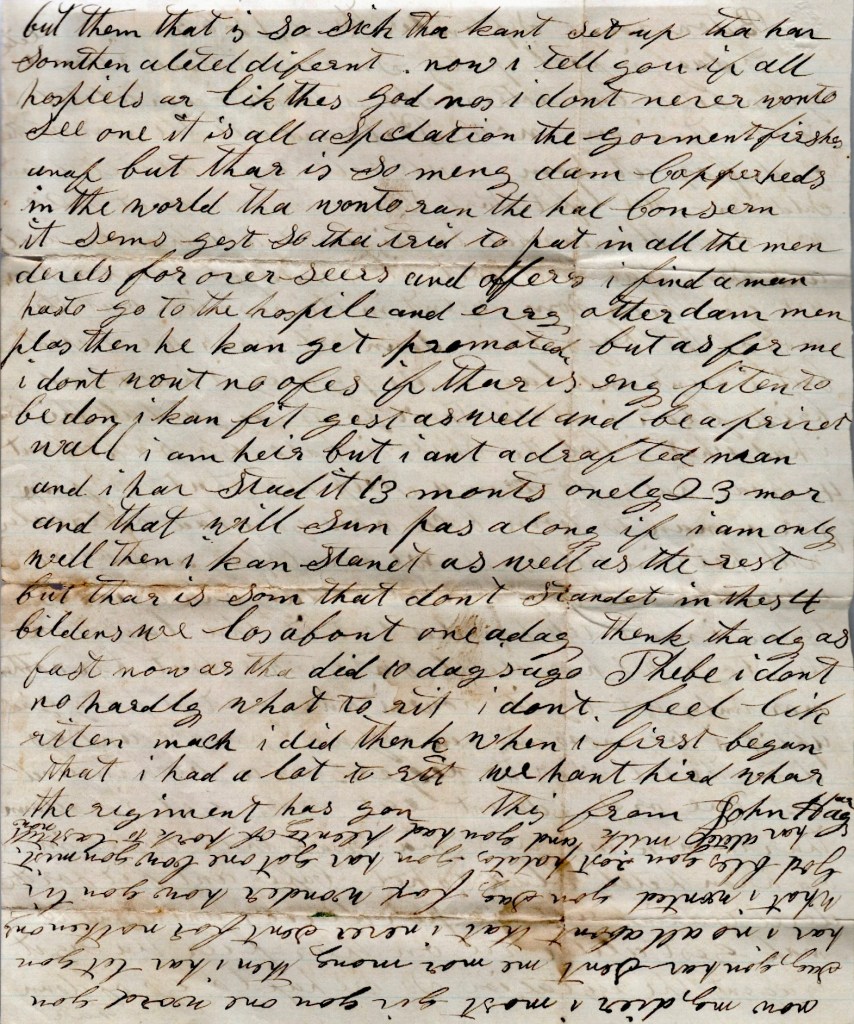 but them that is so sick tha kant set up tha har
somthen aletel difernt. now i tell you if all
hospiels ar lik thes god nos i dont never wonto
see one it is all a speclation the gorment firshes
anuf but thar is so meney dam Copperheds
in the world tha wonto ran the hal Consern
it sems gest so tha trid to put in all the men
derels for over seers and offers i find a man
hasto go to the hospile and evry other dam men
plas then he kan get promoted but as for me
i dont wont no ofes if thar is eny fiten to
be don i kan fit gest as well and be a privet
wall i am heir but i ant a drafted man
and i har stad it 13 monts onely 23 mor
and that will sun pas along if i am only
well then i kan stanet as well as the rest
but thar is som that dont standet in thes 4
bildens we los about one a day thenk tha dy as
fast now as tha did 10 days ago Phebe i dont
no hardly what to rit i dont. feel lik
riten mach i did thenk when i first began
that i had a lot to rit we hant hird whar
the regiment has gon this from John
now my dier i most giv you one word you
say you har sent me mor mony then i har let you
har i no all about that i never sent for nothen only
what i wonted you say fox wonder how you liv
god bles you lost potatos you har got one cow you must
har milk and you had plenty of pork to last